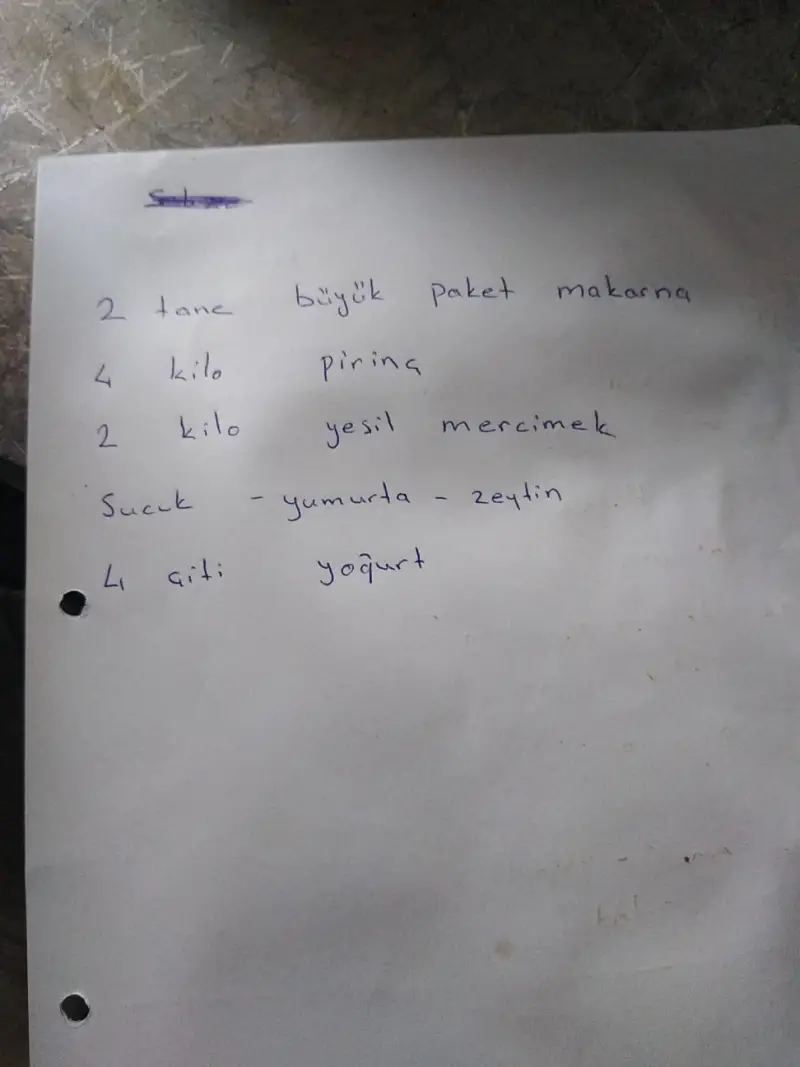 2 tane büyük paket makarna
4 kilo pirinç
2 kilo yesil mercimek
Sucuk - yumurta - zeytin
4 çiti yoğurt